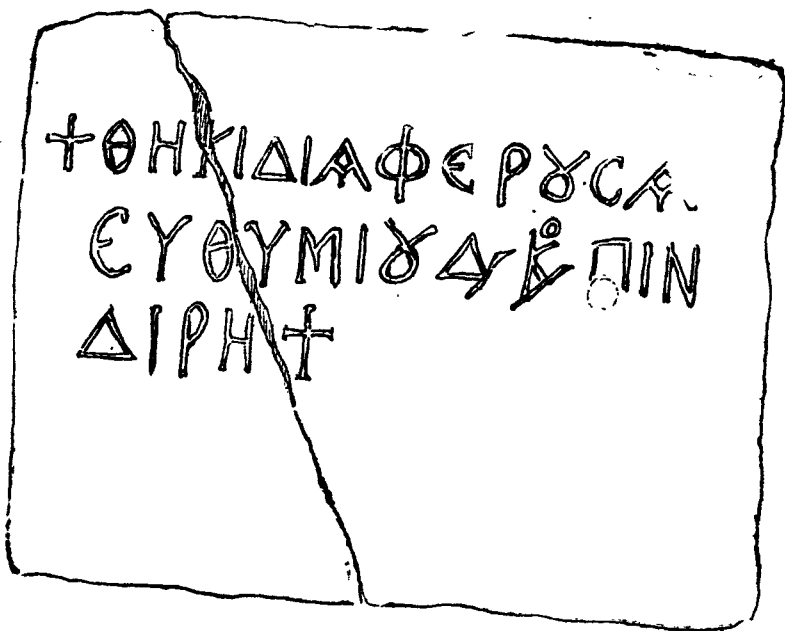 +ΘΗΚΙΔΙΑΦΕΡȢCΑ
ЄΥΘΥΜΙȢΔΚ̊ΠΙΝ
ΔΙΡΗ+